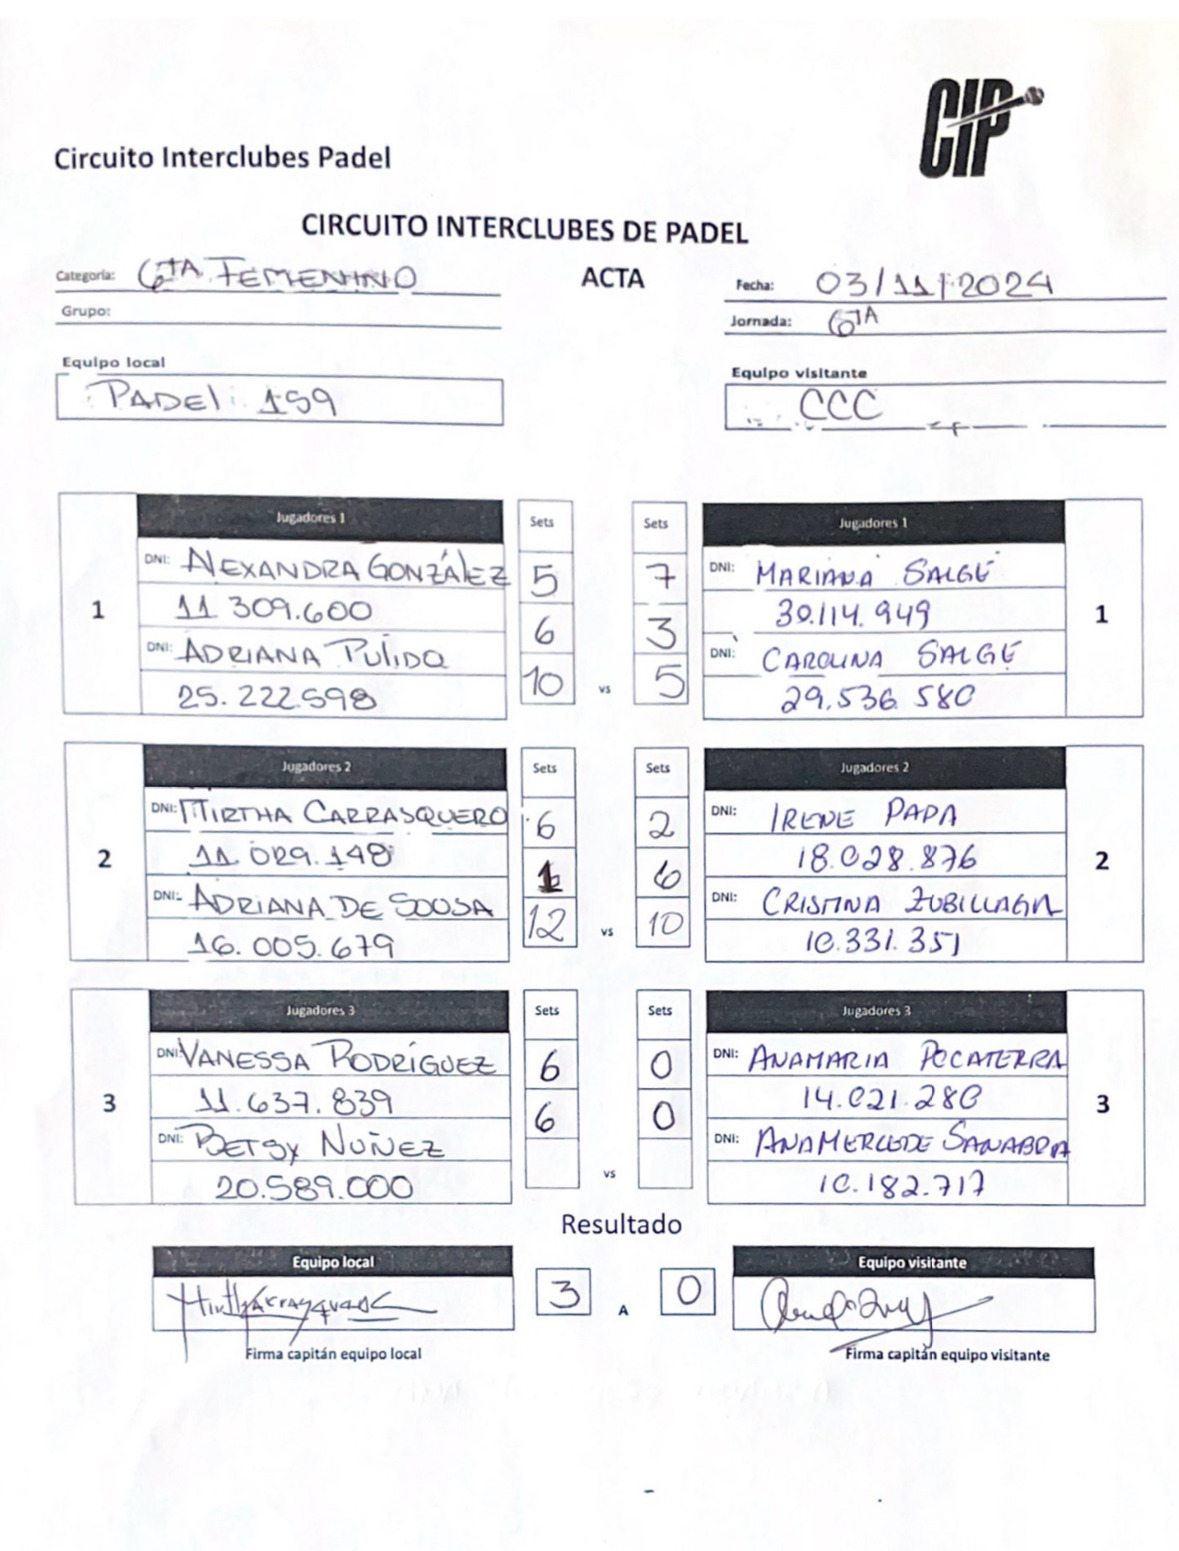 CIP
Circuito Interclubes Padel
CIRCUITO INTERCLUBES DE PADEL
Categoría: 6TA FEMENINO
ACTA
Fecha: 03/11/2024
Grupo:
Jornada: 6TA
Equipo local
Equipo visitante
PADEL 159
CCC
Jugadores 1
Sets
Sets
Jugadores 1
1
DNI: ALEXANDRA GONZÁLEZ 5
7 DNI: MARIANA SALGÉ
1
11 309.600
30.114.949
6
3
DNI: ADRIANA PULIDO
DNI: CAROLINA SALGÉ
25.222598
10 vs 5
29.536 580
Jugadores 2
Sets
Sets
Jugadores 2
2
DNI: MIRTHA CARRASQUERO 6
2 DNI: IRENE PAPA
2
11.029.148
18.028.876
1
6
DNI: ADRIANA DE SOUSA
DNI: CRISTINA ZUBILLAGA
16.005.679
12 vs 10
10.331.351
Jugadores 3
Sets
Sets
Jugadores 3
3
DNI: VANESSA RODRÍGUEZ 6
0 DNI: ANAMARIA POCATERRA
3
11.637.839
14.021.280
6
0
DNI: BETSY NUÑEZ
DNI: ANAMERCEDE SANABRIA
20.589.000
vs
10.182.717
Resultado
Equipo local
Equipo visitante
3 A 0
Firma capitán equipo local
Firma capitán equipo visitante